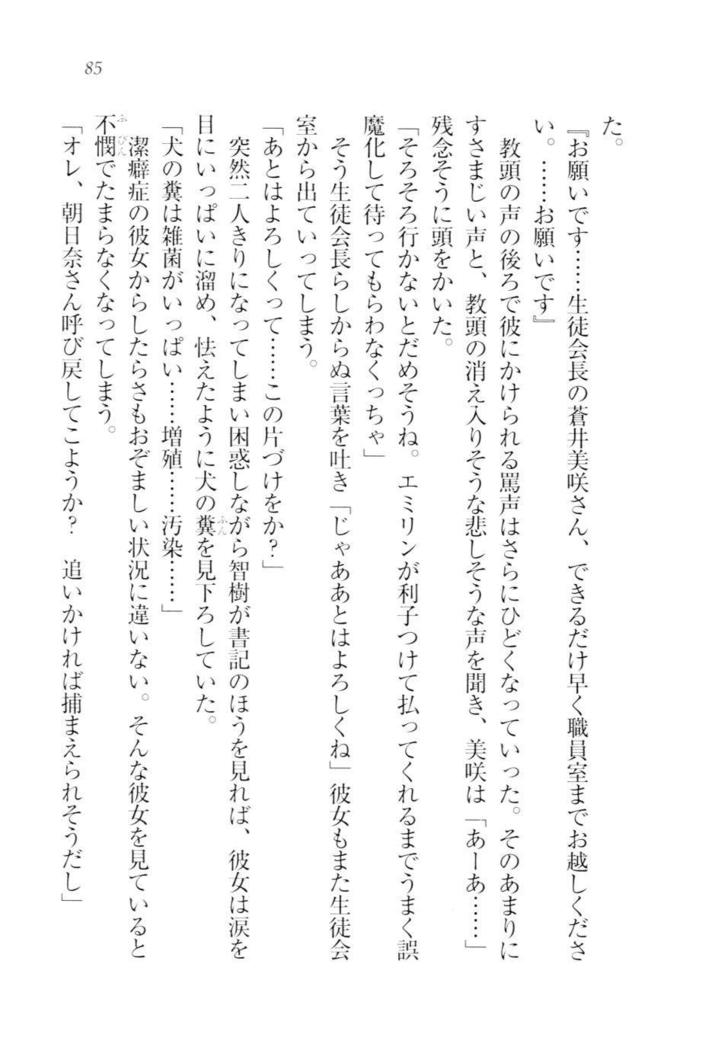 85
た。
『お願いです……生徒会長の蒼井美咲さん、できるだけ早く職員室までお越しくださ
い。……お願いです』
　教頭の声の後ろで彼にかけられる罵声はさらにひどくなっていった。そのあまりに
すさまじい声と、教頭の消え入りそうな悲しそうな声を聞き、美咲は「あーあ……」
残念そうに頭をかいた。
「そろそろ行かないとだめそうね。エミリンが利子つけて払ってくれるまでうまく誤
魔化して待ってもらわなくっちゃ」
　そう生徒会長らしからぬ言葉を吐き「じゃああとはよろしくね」彼女もまた生徒会
室から出ていってしまう。
「あとはよろしくって……この片づけをか？」
　突然二人きりになってしまい困惑しながら智樹が書記のほうを見れば、彼女は涙を
目にいっぱいに溜め、怯えたように犬の糞ふんを見下ろしていた。
「犬の糞は雑菌がいっぱい……増殖……汚染……」
　潔癖症の彼女からしたらさもおぞましい状況に違いない。そんな彼女を見ていると
不憫ふびんでたまらなくなってしまう。
「オレ、朝日奈さん呼び戻してこようか？　追いかければ捕まえられそうだし」